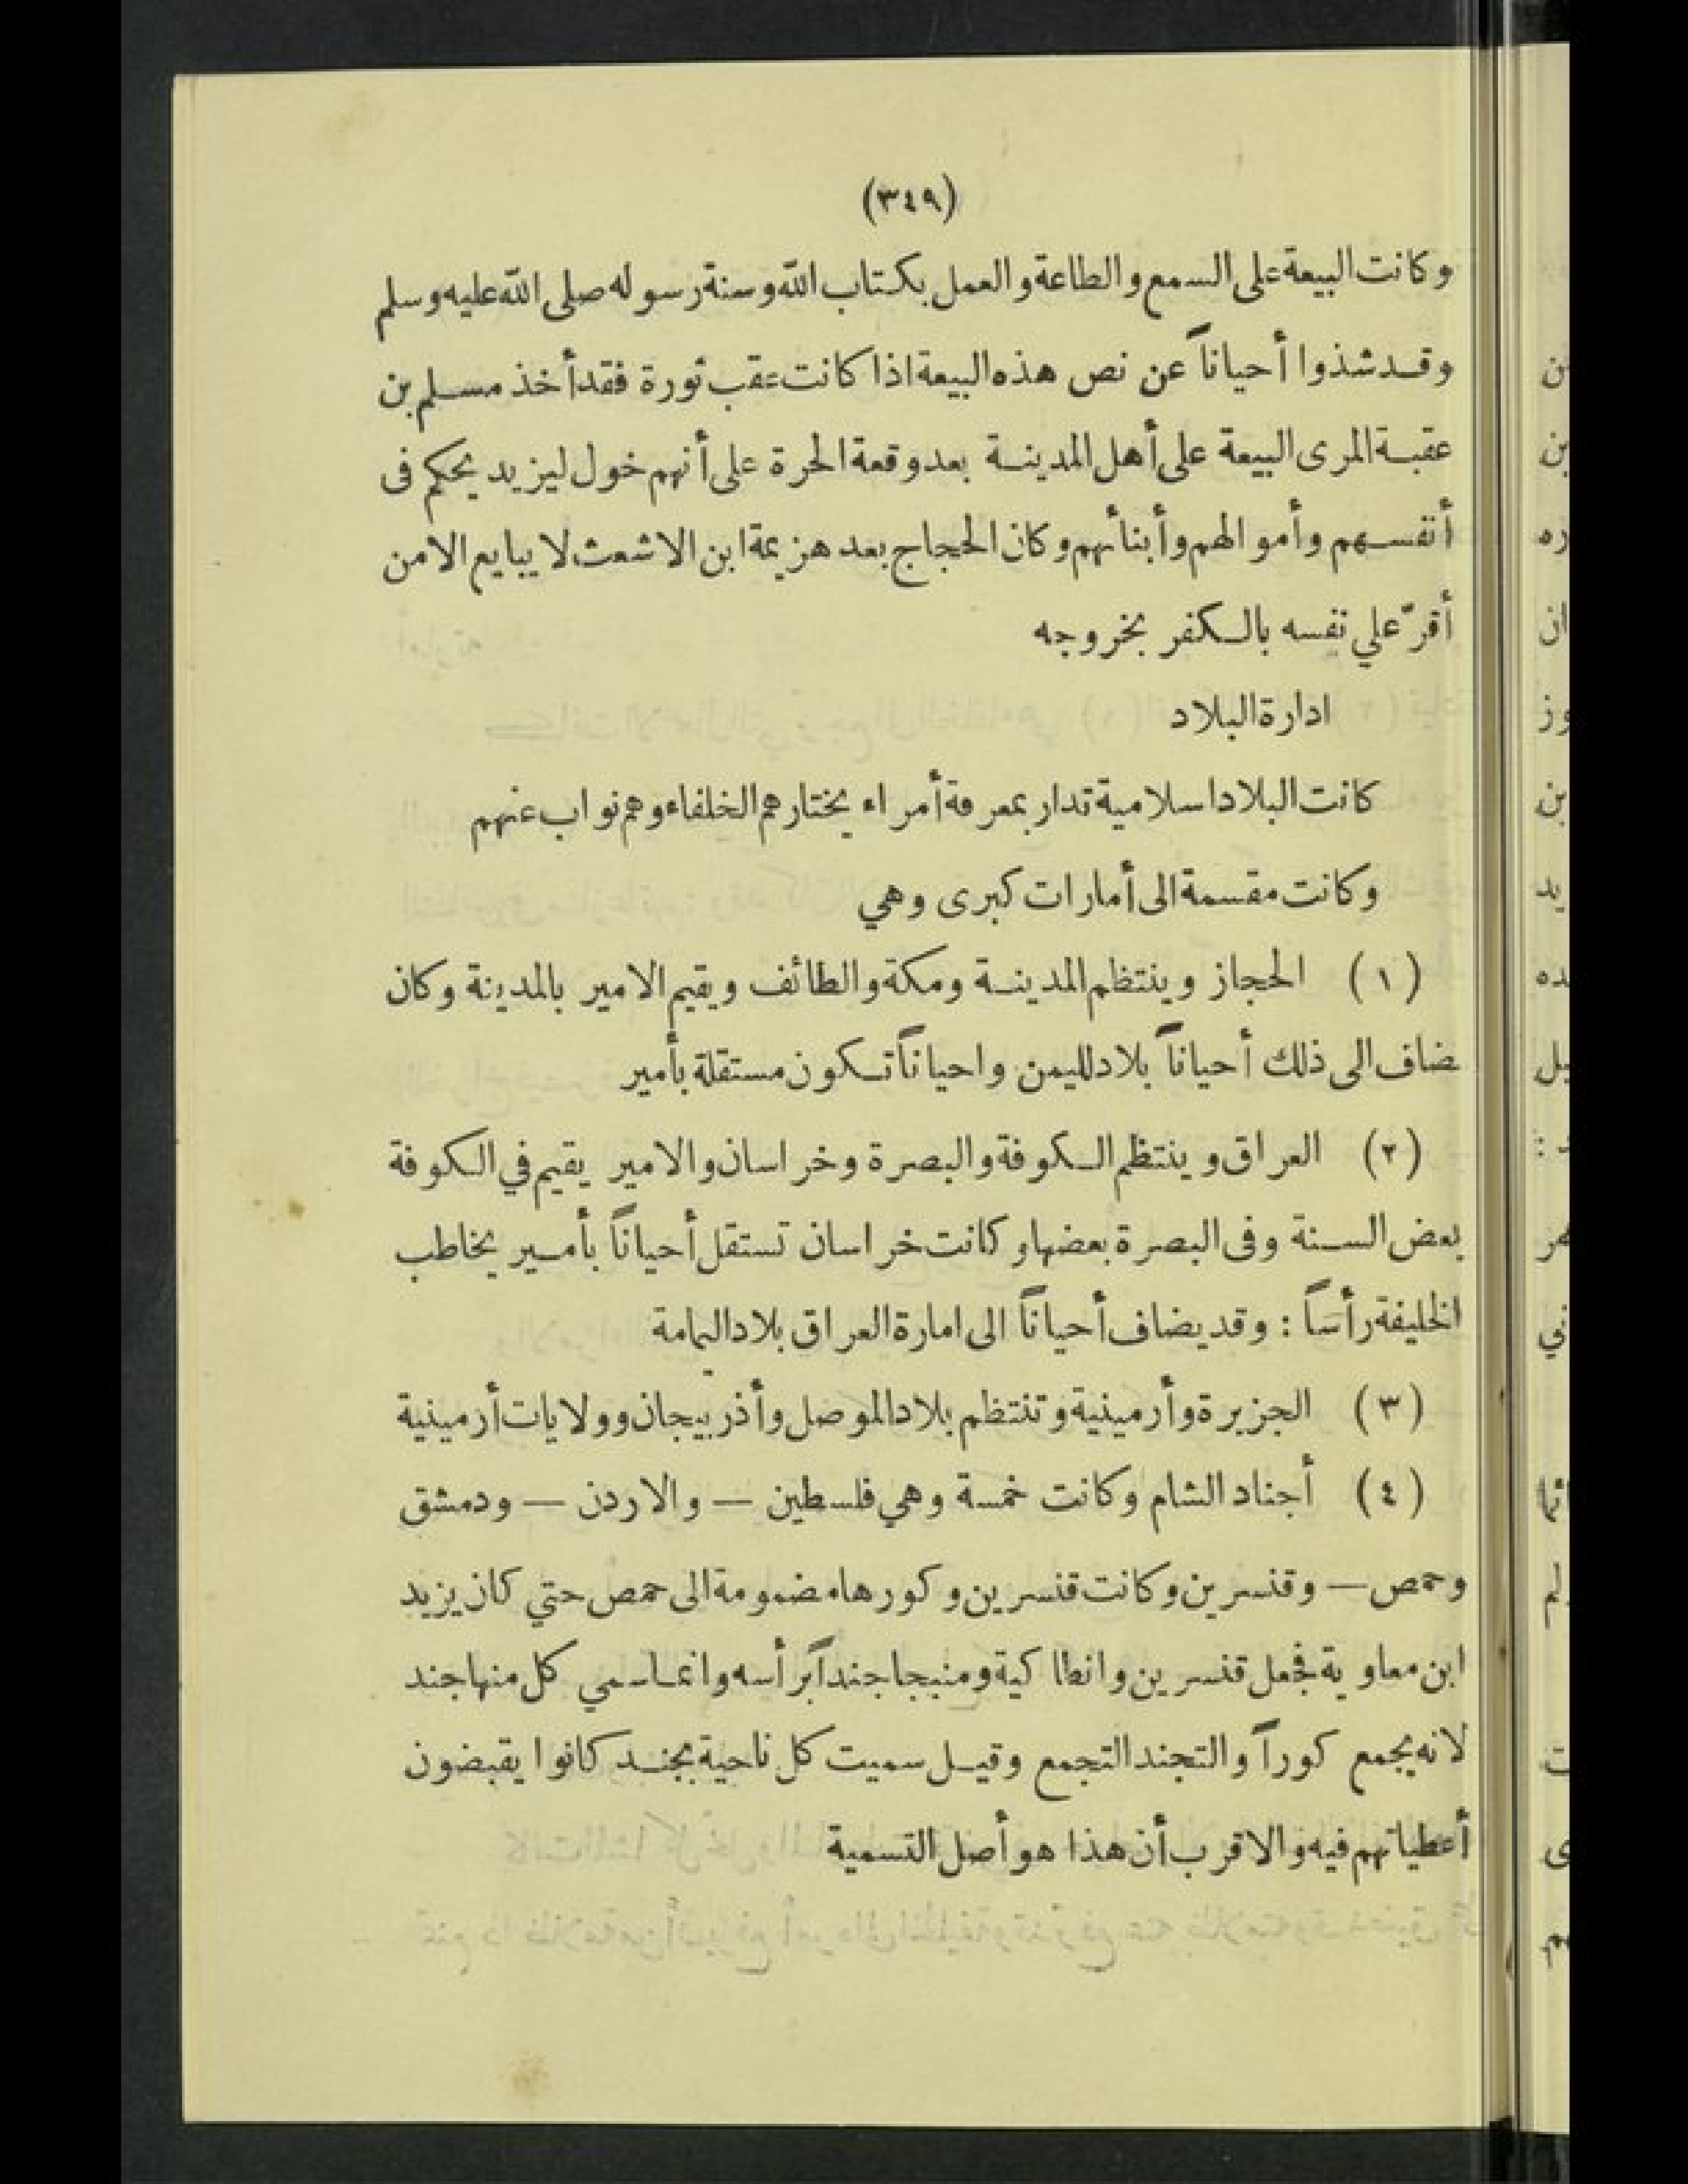 (٣٤٩)
وكانت البيعة على السمع والطاعة والعمل بكتاب الله وسنة رسوله صلى الله عليه وسلم
وقد شذوا أحياناً عن نص هذه البيعة اذا كانت عقب ثورة فقد أخذ مسلم بن
عقبة المرى البيعة على أهل المدينة بعد وقعة الحرة على أنهم خول ليزيد يحكم فى
أنفسهم وأموالهم وأبنائهم وكان الحجاج بعد هزيمة ابن الاشعث لا يبايع الا من
أقرّ علي نفسه بالكفر بخروجه
ادارة البلاد
كانت البلاد اسلامية تدار بمعرفة أمراء يختارهم الخلفاء وهم نواب عنهم
وكانت مقسمة الى أمارات كبرى وهي
(١) الحجاز وينتظم المدينة ومكة والطائف ويقيم الامير بالمدينة وكان
يضاف الى ذلك أحياناً بلاد لليمن واحياناً تكون مستقلة بأمير
(٢) العراق وينتظم الكوفة والبصرة وخراسان والامير يقيم في الكوفة
بعض السنة وفى البصرة بعضها وكانت خراسان تستقل أحياناً بأمير يخاطب
الخليفة رأساً : وقد يضاف أحياناً الى امارة العراق بلاد اليمامة
(٣) الجزيرة وأرمينية وتنتظم بلاد الموصل وأذربيجان وولايات أرمينية
(٤) أجناد الشام وكانت خمسة وهي فلسطين — والاردن — ودمشق
وحمص — وقنسرين وكانت قنسرين وكورها مضمومة الى حمص حتي كان يزيد
ابن معاوية فجعل قنسرين وانطاكية ومنبجا جنداً برأسه وانما سمي كل منها جند
لانه يجمع كوراً والتجند التجمع وقيل سميت كل ناحية بجند كانوا يقبضون
أعطياتهم فيه والاقرب أن هذا هو أصل التسمية